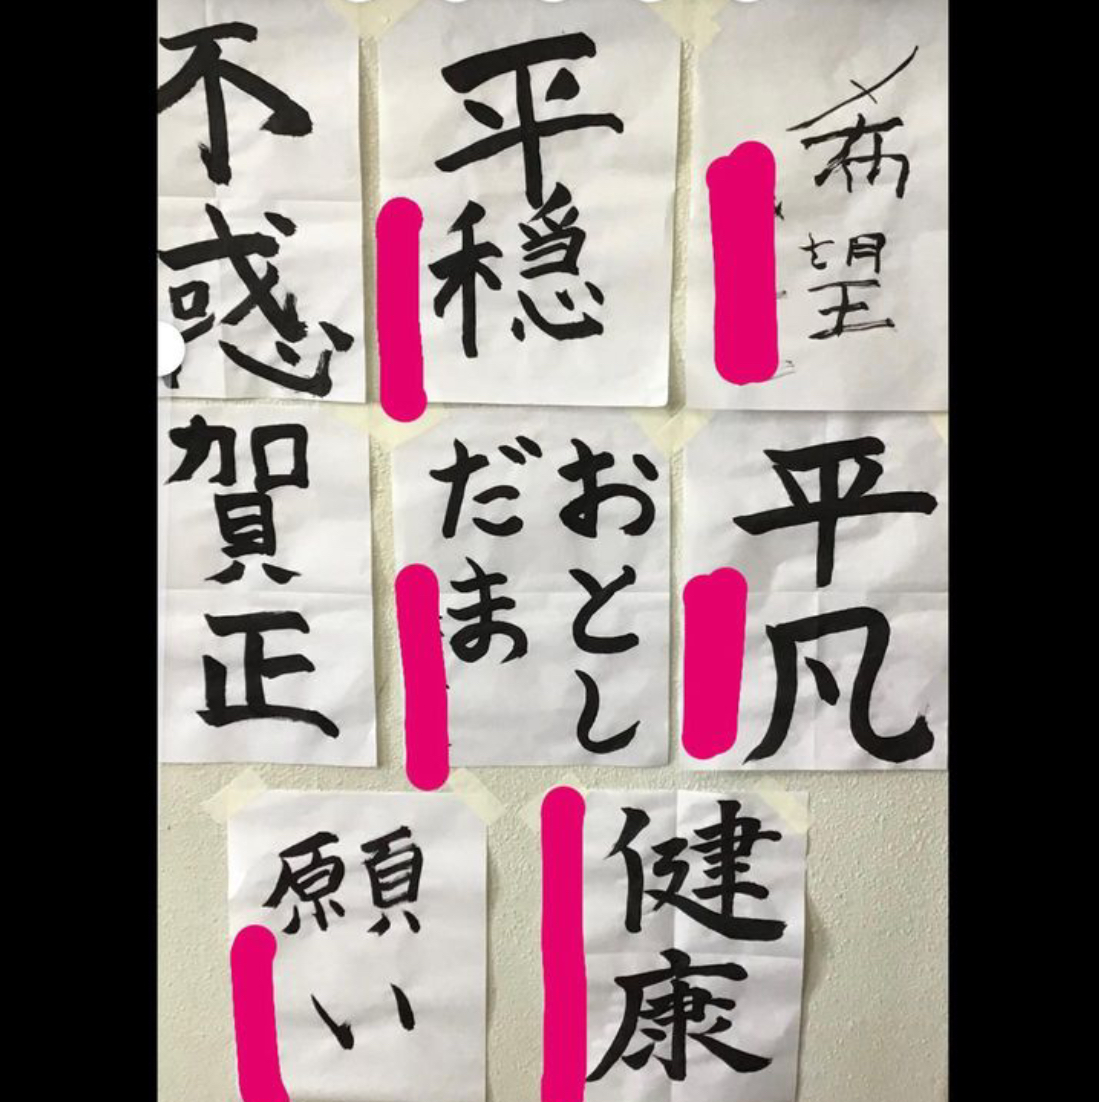 希望
平穏
不惑
平凡
おとし
だま
賀正
健康
願い